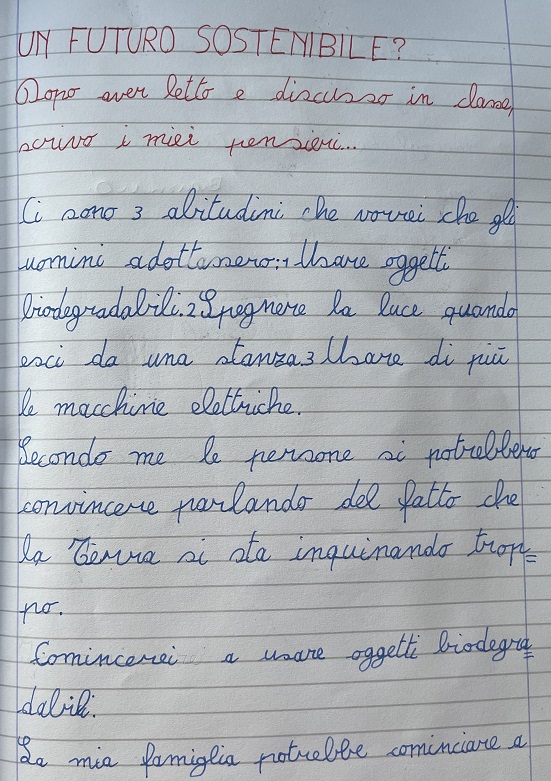 UN FUTURO SOSTENIBILE?
Dopo aver letto e discusso in classe,
scrivo i miei pensieri...
Ci sono 3 abitudini che vorrei che gli
uomini adottassero:1 Usare oggetti
biodegradabili.2 Spegnere la luce quando
esci da una stanza 3 Usare di più
le macchine elettriche.
Secondo me le persone si potrebbero
convincere parlando del fatto che
la Terra si sta inquinando trop=
po.
Comincerei a usare oggetti biodegra=
dabili.
La mia famiglia potrebbe cominciare a